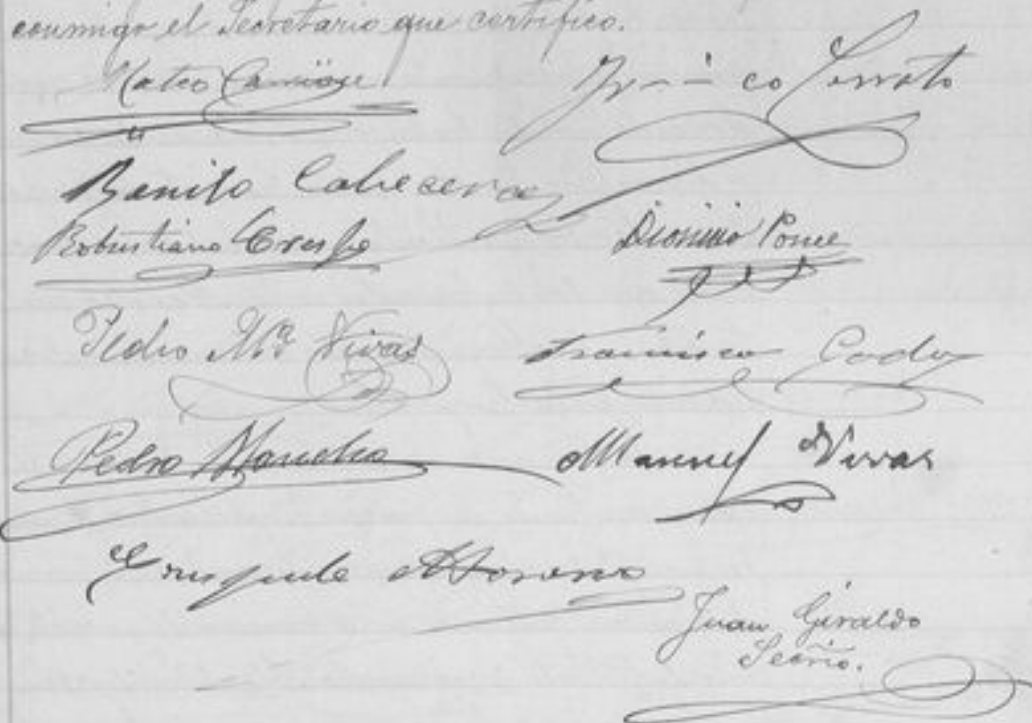 conmigo el Secretario que certifico.
Mateo
Serrato
Benito Cabeceras
Robustiano Crespo
Dionisio Ponce
Pedro Mª Vivas
Francisco Godoy
Pedro Mancha
Manuel Vivas
Enrique Moreno
Juan Giraldo
Secrio.